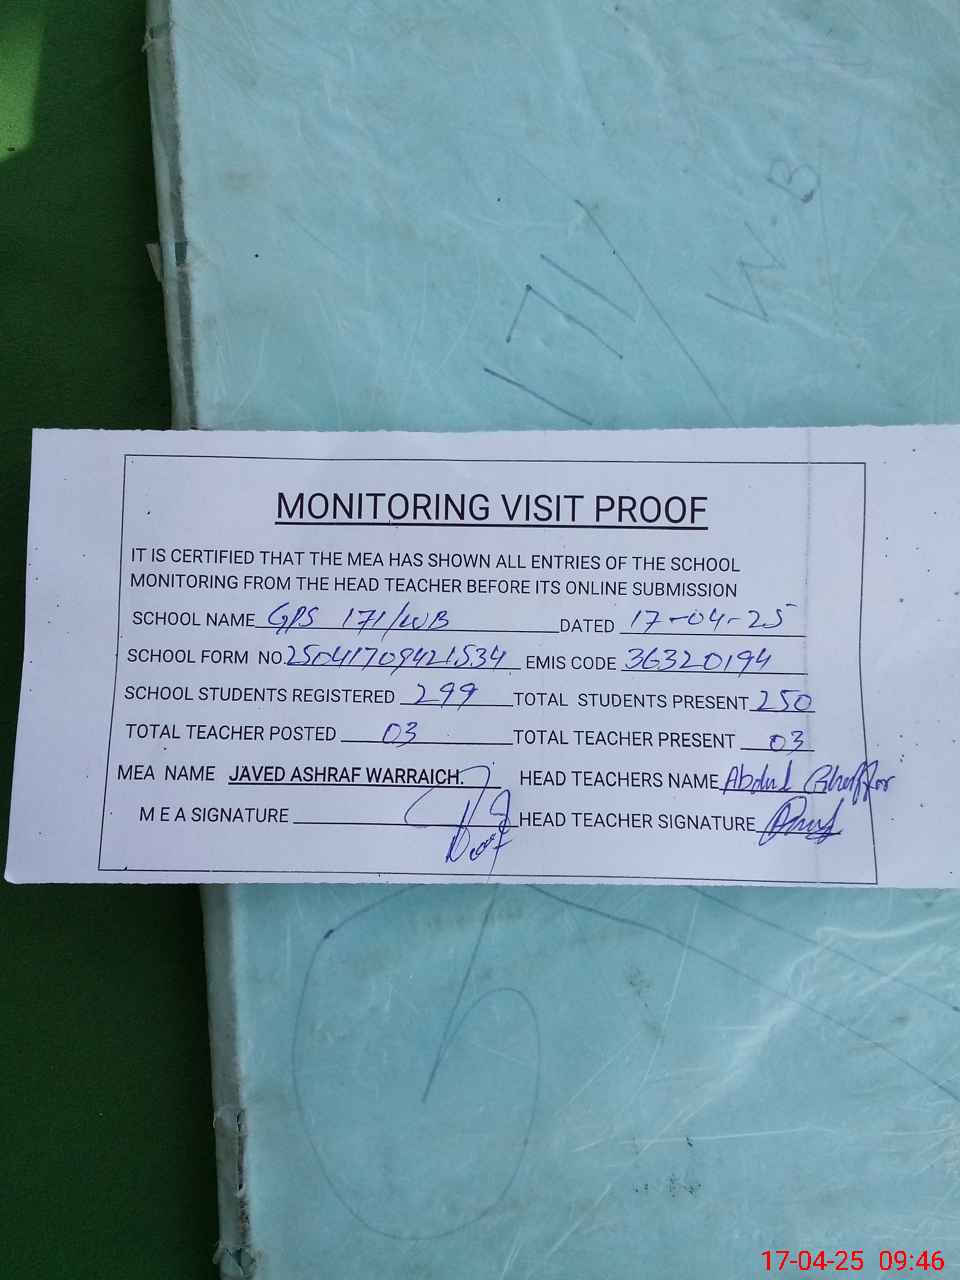 171/WB
MONITORING VISIT PROOF
IT IS CERTIFIED THAT THE MEA HAS SHOWN ALL ENTRIES OF THE SCHOOL
MONITORING FROM THE HEAD TEACHER BEFORE ITS ONLINE SUBMISSION
SCHOOL NAME GPS 171/WB DATED 17-04-25
SCHOOL FORM NO. 25041709421534 EMIS CODE 36320194
SCHOOL STUDENTS REGISTERED 299 TOTAL STUDENTS PRESENT 250
TOTAL TEACHER POSTED 03 TOTAL TEACHER PRESENT 03
MEA NAME JAVED ASHRAF WARRAICH. HEAD TEACHERS NAME Abdul Ghaffar
M E A SIGNATURE HEAD TEACHER SIGNATURE
17-04-25 09:46